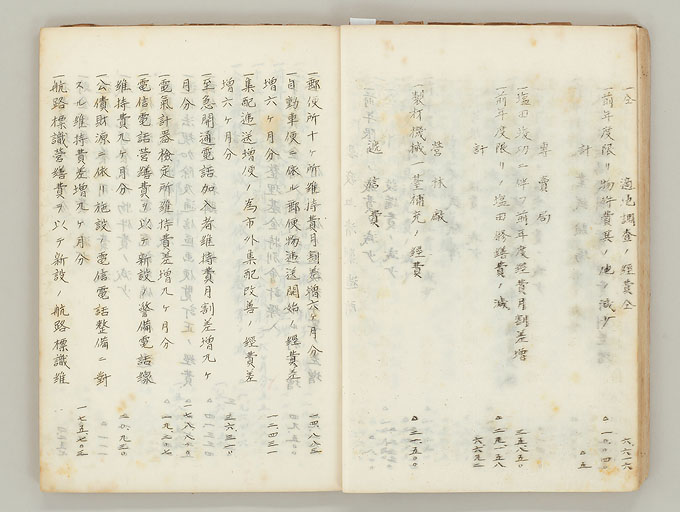 一仝 適地調査ノ經費仝 六、六一六
一前年度限リ物件費其ノ他ノ減少 △一、〇〇四
計 △五
專賣局
一塩田竣功ニ伴フ前年度經費月割差増 三五、八五〇
一前年度限リノ塩田修繕費ノ減 △二九、一五八
計 六、六九二
營林廠
一製材機械一基補充ノ經費 △三一、五〇〇
遞信費
一郵便所十ヶ所維持費月割差増六ヶ月分 一四、八八三
一自動車便ニ依ル郵便物遞送開始ノ經費差
増六ヶ月分 一二、四三一
一集配遞送増便ノ為市外集配改善ノ經費差
増六ヶ月分 三六、三一〇
一至急開通電話加入者維持費月割差増九ヶ
月分 一七、八八〇
一電氣計器檢定所維持費差増九ヶ月分 一九、二〇七
一電信電話營繕費ヲ以テ新設ノ警備電話線
維持費九ヶ月分 二〇、九二〇
一公債財源ニ依リ施設ノ電信電話整備ニ對
スル維持費差増九ヶ月分
一航路標識營繕費ヲ以テ新設ノ航路標識維 一七五、七〇三